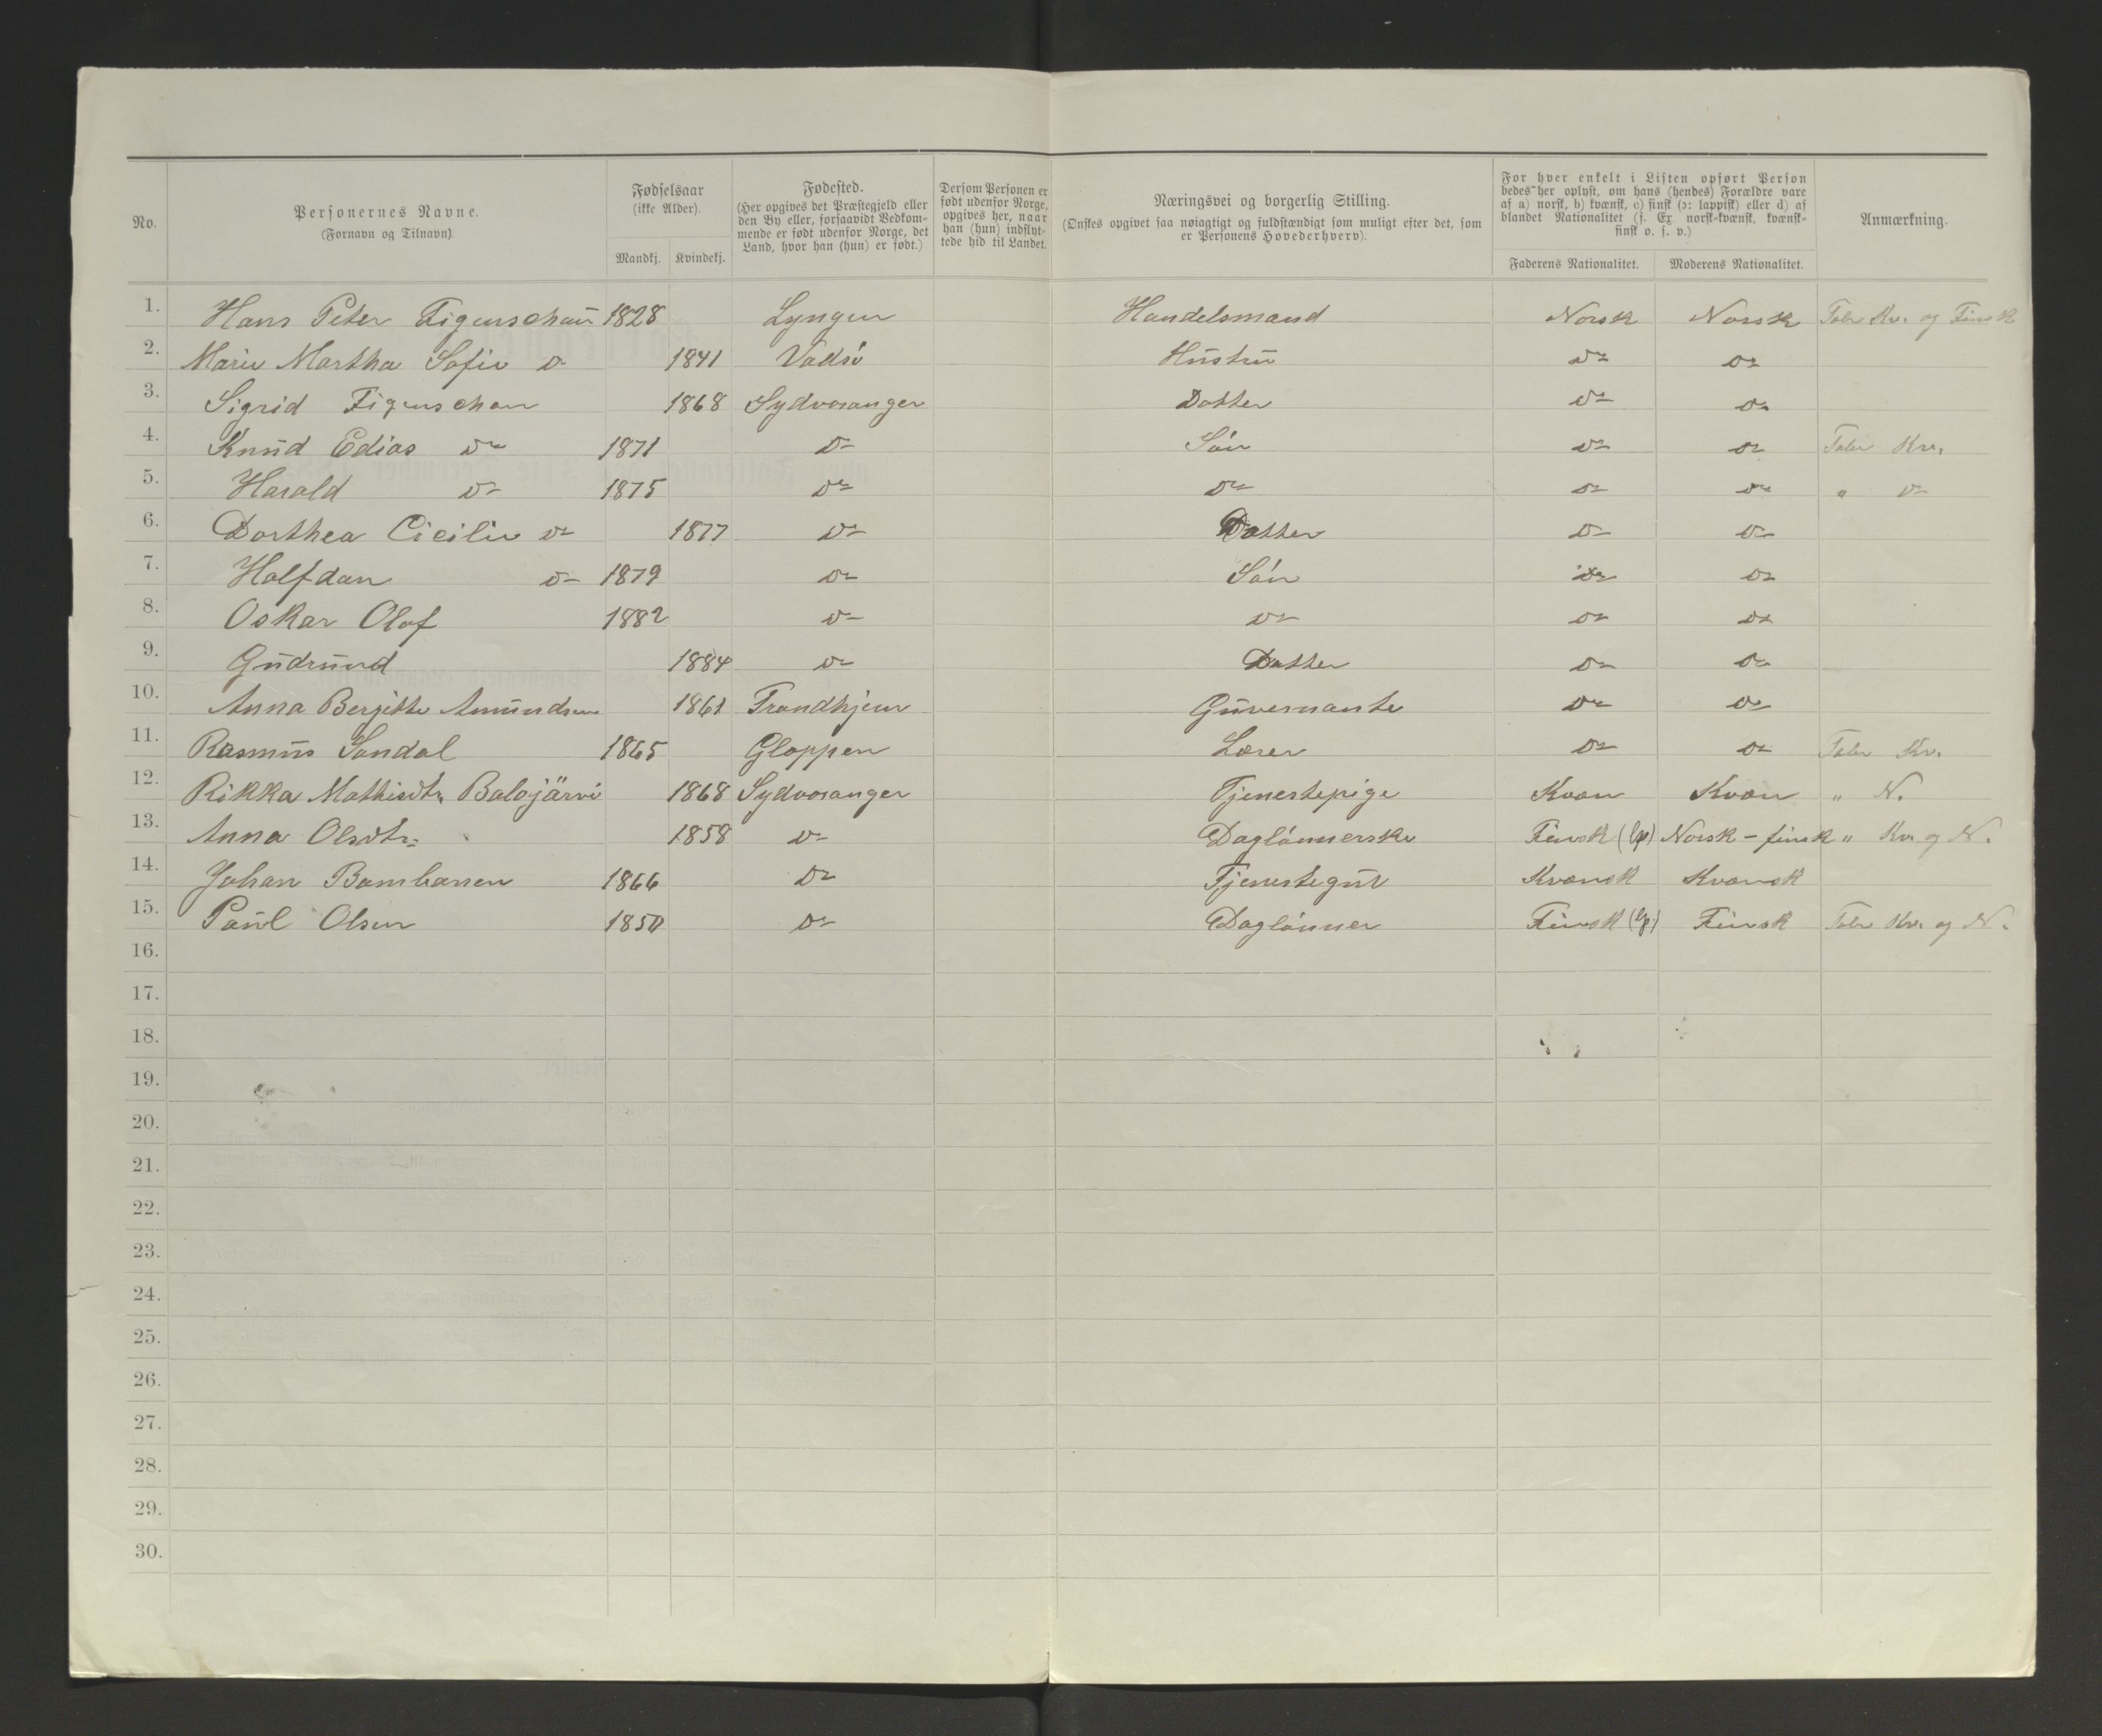 No.
Personernes Navne.
(Fornavn og Tilnavn).
Fødselsaar
(ikke Alder).
Mandkj. Kvindekj.
Fødested.
(Her opgives det Præstegjeld eller
den By eller, forsaavidt Vedkom-
mende er født udenfor Norge, det
Land, hvor han (hun) er født.)
Dersom Personen er
født udenfor Norge,
opgives her, naar
han (hun) indflyt-
tede hid til Landet.
Næringsvei og borgerlig Stilling.
(Ønskes opgivet saa nøiagtigt og fuldstændigt som muligt efter det, som
er Personens Hovederhverv).
For hver enkelt i Listen opført Person
bedes her oplyst, om hans (hendes) Forældre vare
af a) norsk, b) kvænsk, c) finsk (ɔ: lappisk) eller d) af
blandet Nationalitet (f. Ex. norsk-kvænsk, kvænsk-
finsk o. s. v.)
Faderens Nationalitet. Moderens Nationalitet.
Anmærkning.
1. Hans Peter Figenschau 1828 Lyngen Handelsmand Norsk Norsk Taler Kv. og Finsk
2. Marie Martha Sofie do 1841 Vadsö Hustru do do
3. Sigrid Figenschau 1868 Sydvaranger Datter do do
4. Knud Edias do 1871 do Sön do do Taler Kv.
5. Harald do 1875 do do do do " do
6. Dorthea Cicilie do 1877 do Datter do do
7. Halfdan do 1879 do Sön do do
8. Oskar Olaf 1882 do do do do
9. Gudrund 1884 do Datter do do
10. Anna Bergitte Amundsen 1861 Trondhjem Guvernante do do
11. Rasmus Sandal 1865 Gloppen Lærer do do Taler Kv.
12. Rikka Mathisdtr. Balojärvi 1868 Sydvaranger Tjenestepige Kvæn Kvæn " N.
13. Anna Olsdtr: 1858 do Daglönnerske Finsk (lp) Norsk-finsk " Kv. og N.
14. Johan Bombanen 1866 do Tjenestegut Kvænsk Kvænsk
15. Paul Olsen 1850 do Daglönner Finsk (lp.) Finsk Taler Kv. og N.
16.
17.
18.
19.
20.
21.
22.
23.
24.
25.
26.
27.
28.
29.
30.